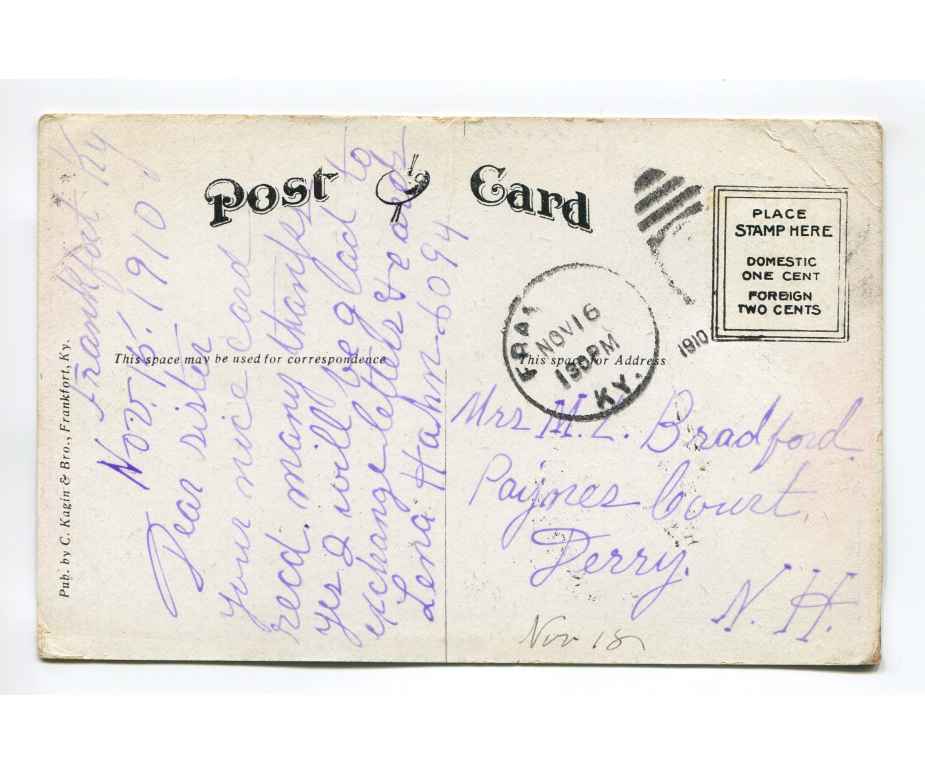 Post Card
PLACE
STAMP HERE
DOMESTIC
ONE CENT
FOREIGN
TWO CENTS
NOV 16
130 PM
KY.
1910
This space may be used for correspondence
This space for Address
Pub. by C. Kagin & Bro., Frankfort, Ky.
Frankfort Ky
Nov. 15. 1910
Dear sister
your nice card
recd. many thanks
yes I will be glad to
exchange letters &
Lena Hahn 6094
Mrs M. L. Bradford.
Paynes Court,
Derry.
N. H.
Nov 18